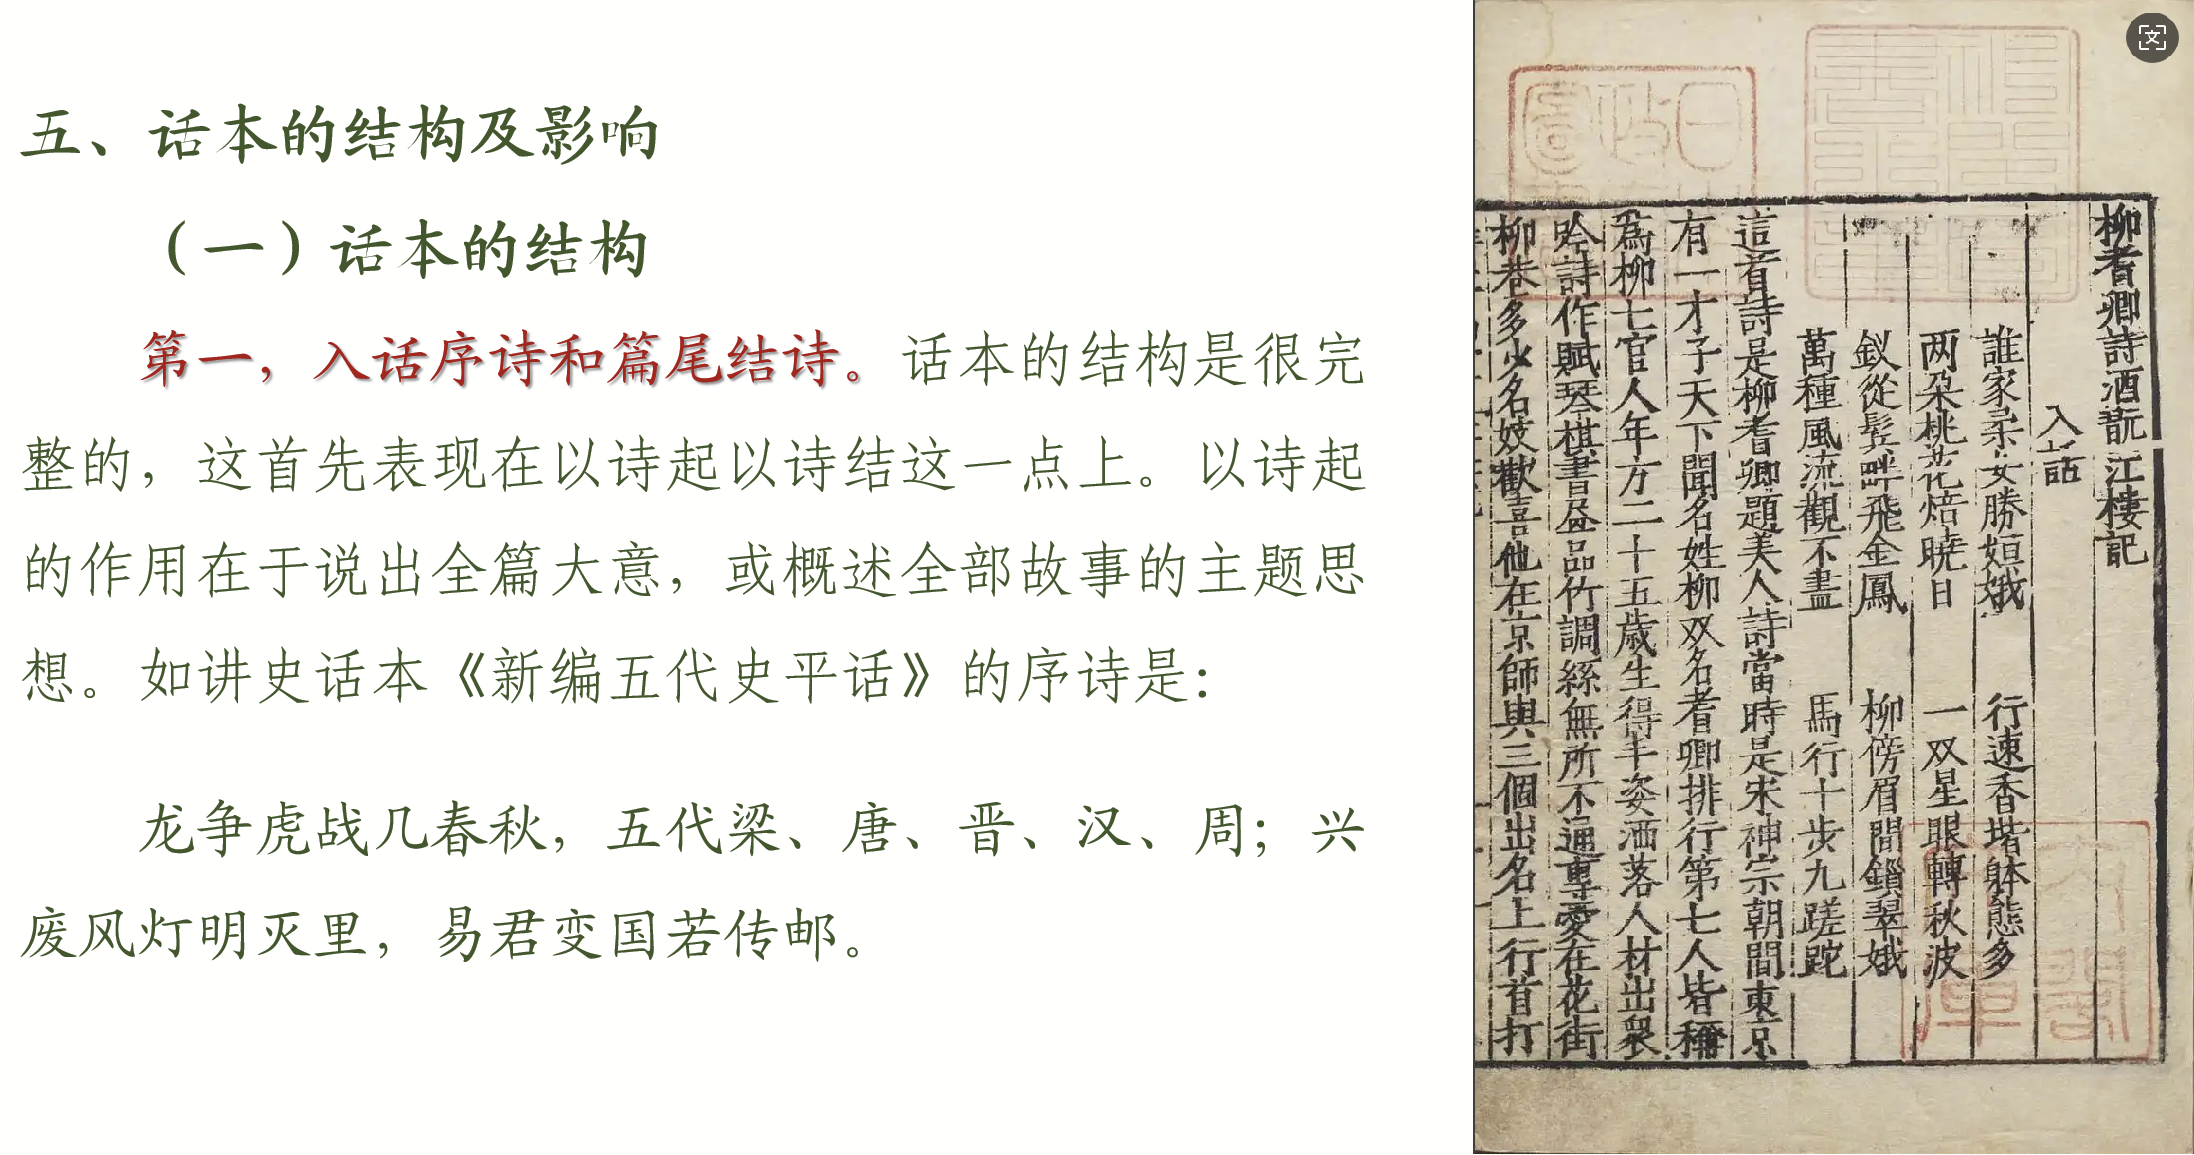 五、话本的结构及影响
（一）话本的结构
第一，入话序诗和篇尾结诗。话本的结构是很完
整的，这首先表现在以诗起以诗结这一点上。以诗起
的作用在于说出全篇大意，或概述全部故事的主题思
想。如讲史话本《新编五代史平话》的序诗是：
龙争虎战几春秋，五代梁、唐、晋、汉、周；兴
废风灯明灭里，易君变国若传邮。
柳耆卿詩酒翫江樓記
入話
誰家柔女勝姮娥 行速香堦躰態多
两朶桃花焙曉日 一双星眼轉秋波
釵從鬂畔飛金鳳 柳傍眉間鎖翠娥
萬種風流觀不盡 馬行十步九蹉跎
這首詩是柳耆卿題美人詩當時是宋神宗朝間東京
有一才子天下聞名姓柳双名耆卿排行第七人皆稱
爲柳七官人年方二十五歲生得丰姿洒落人材出衆
吟詩作賦琴棋書畫品竹調絲無所不通專愛在花街
柳巷多少名妓歡喜他在京師與三個出名上行首打